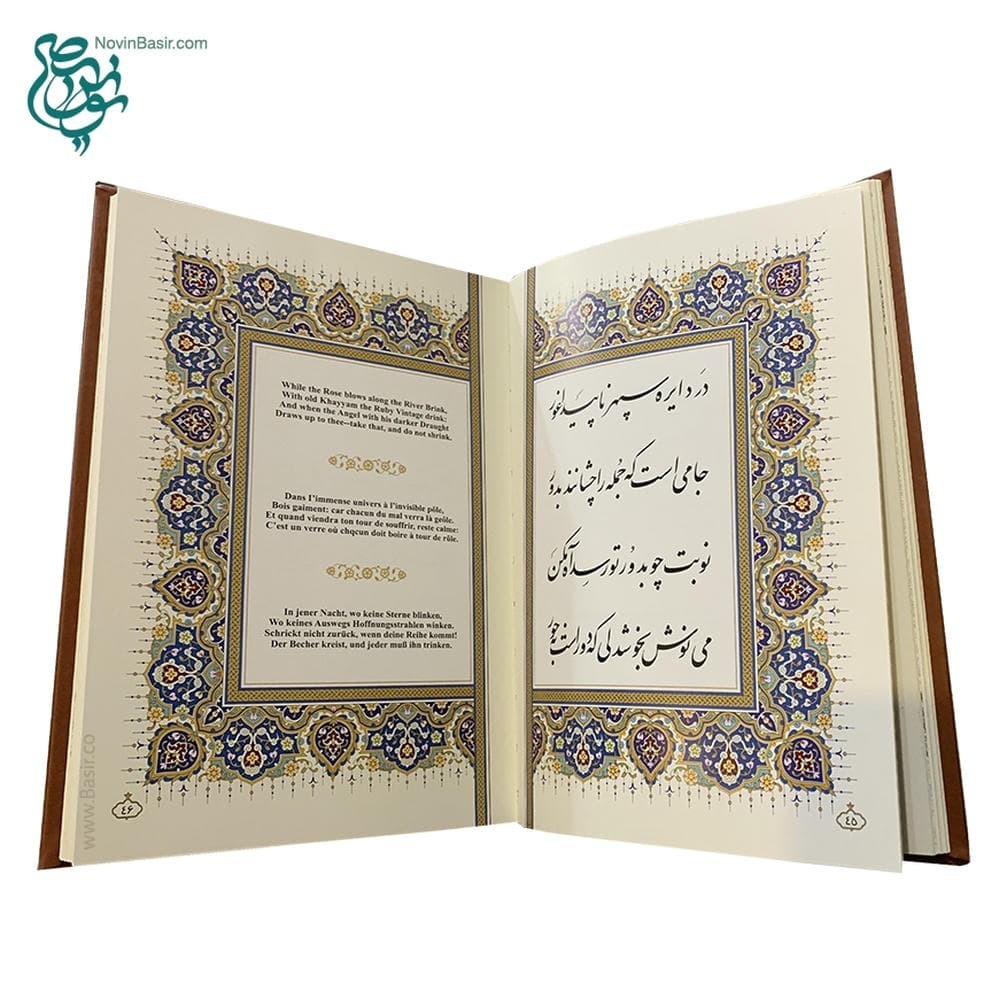 NovinBasir.com
در دایره سپهر ناپیدا غور
جامی است که جمله را چشانند بدور
نوبت چو بدور تو رسد آه مکن
می نوش بخوشدلی که دور است بجور
۴۵
While the Rose blows along the River Brink,
With old Khayyam the Ruby Vintage drink:
And when the Angel with his darker Draught
Draws up to thee--take that, and do not shrink.
Dans I'immense univers à l'invisible pôle,
Bois gaiment: car chacun du mal verra là geôle.
Et quand viendra ton tour de souffrir, reste calme:
C'est un verre où chqcun doit boire à tour de rôle.
In jener Nacht, wo keine Sterne blinken,
Wo keines Auswegs Hoffnungsstrahlen winken.
Schrickt nicht zurück, wenn deine Reihe kommt!
Der Becher kreist, und jeder muß ihn trinken.
۴۶
www.Basir.co